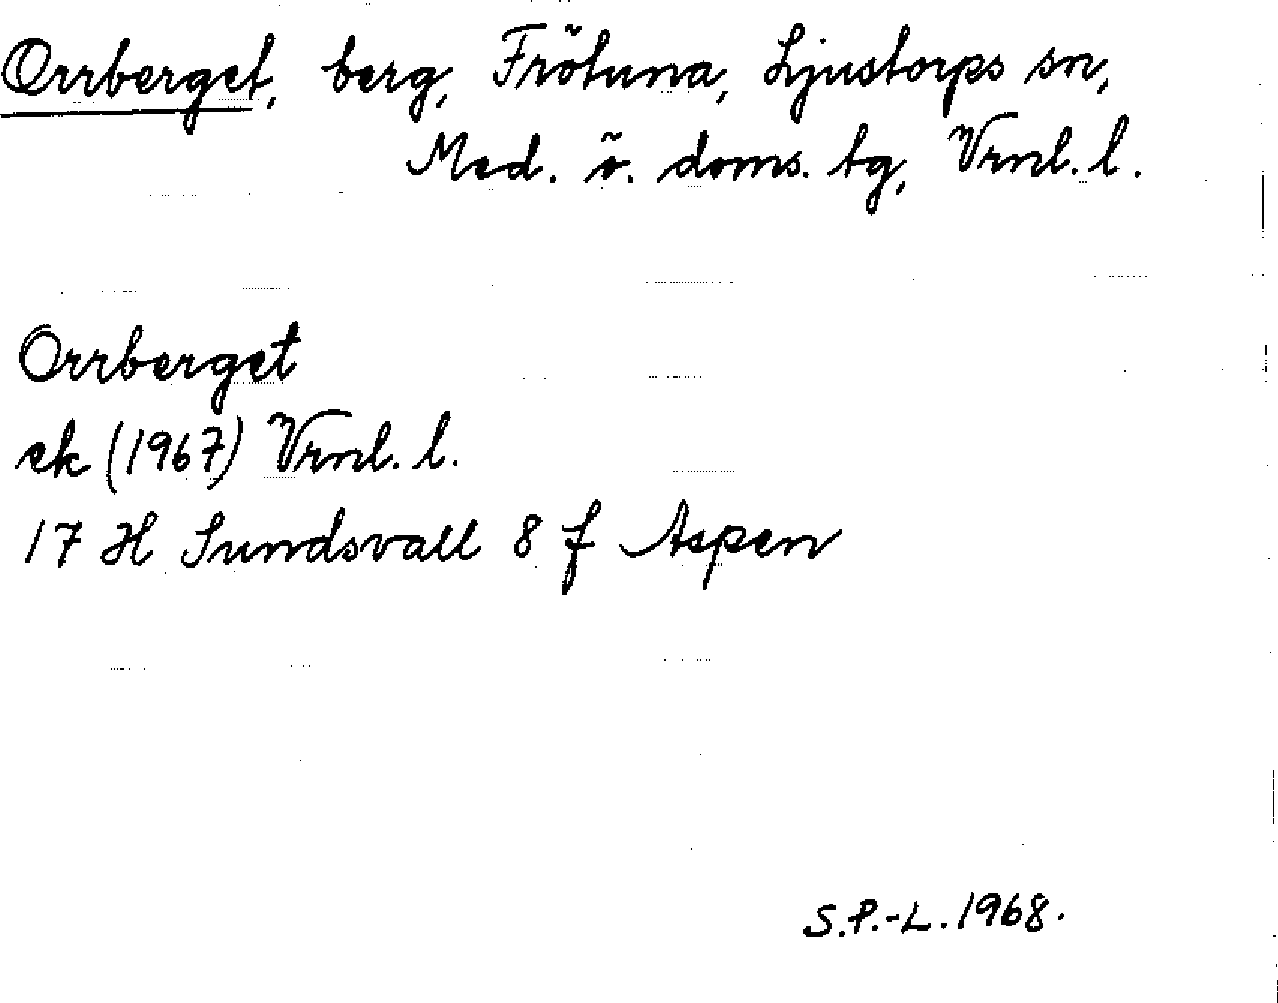 Orrberget, berg, Frötuna, Ljustorps sn,
Med. ö. doms. tg, Vrnl. l.
Orrberget
ek (1967) Vrnl. l.
17 H Sundsvall 8 f Aspen
S.P.-L. 1968.